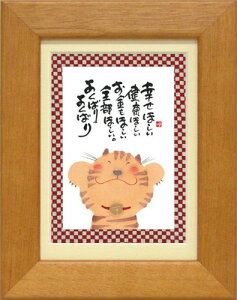 幸せほしい
健康ほしい
お金もほしい
全部ほしい。
よくばり
よくばり